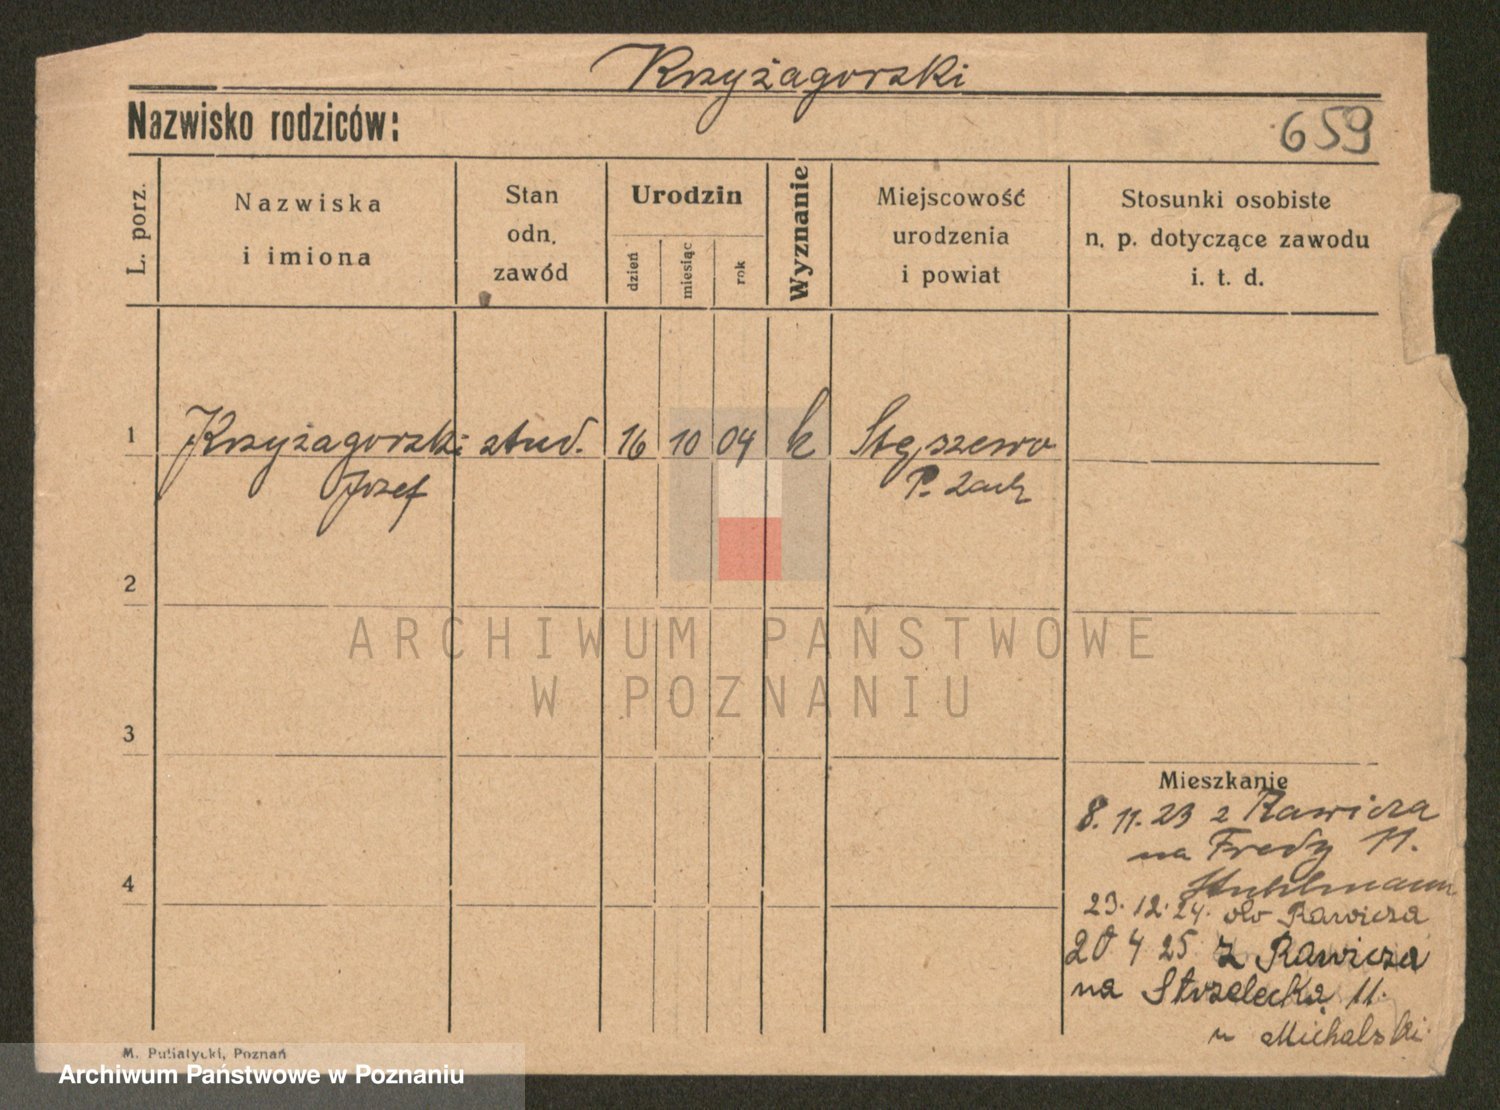 Krzyżagorski
Nazwisko rodziców:
659
L. porz.
Nazwiska
i imiona
Stan
odn.
zawód
Urodzin
dzień
miesiąc
rok
Wyznanie
Miejscowość
urodzenia
i powiat
Stosunki osobiste
n. p. dotyczące zawodu
i. t. d.
1 Krzyżagorski stud. 16 10 04 k Stęszewo
Józef P. Zach
2
ARCHIWUM PAŃSTWOWE
W POZNANIU
3
Mieszkanie
8. 11. 23 z Rawicza
na Fredy 11.
Stuhlmann
4
23. 12. 24. do Rawicza
20 4 25 z Rawicza
na Strzelecką 11.
u Michalski
M. Putiatycki, Poznań
Archiwum Państwowe w Poznaniu